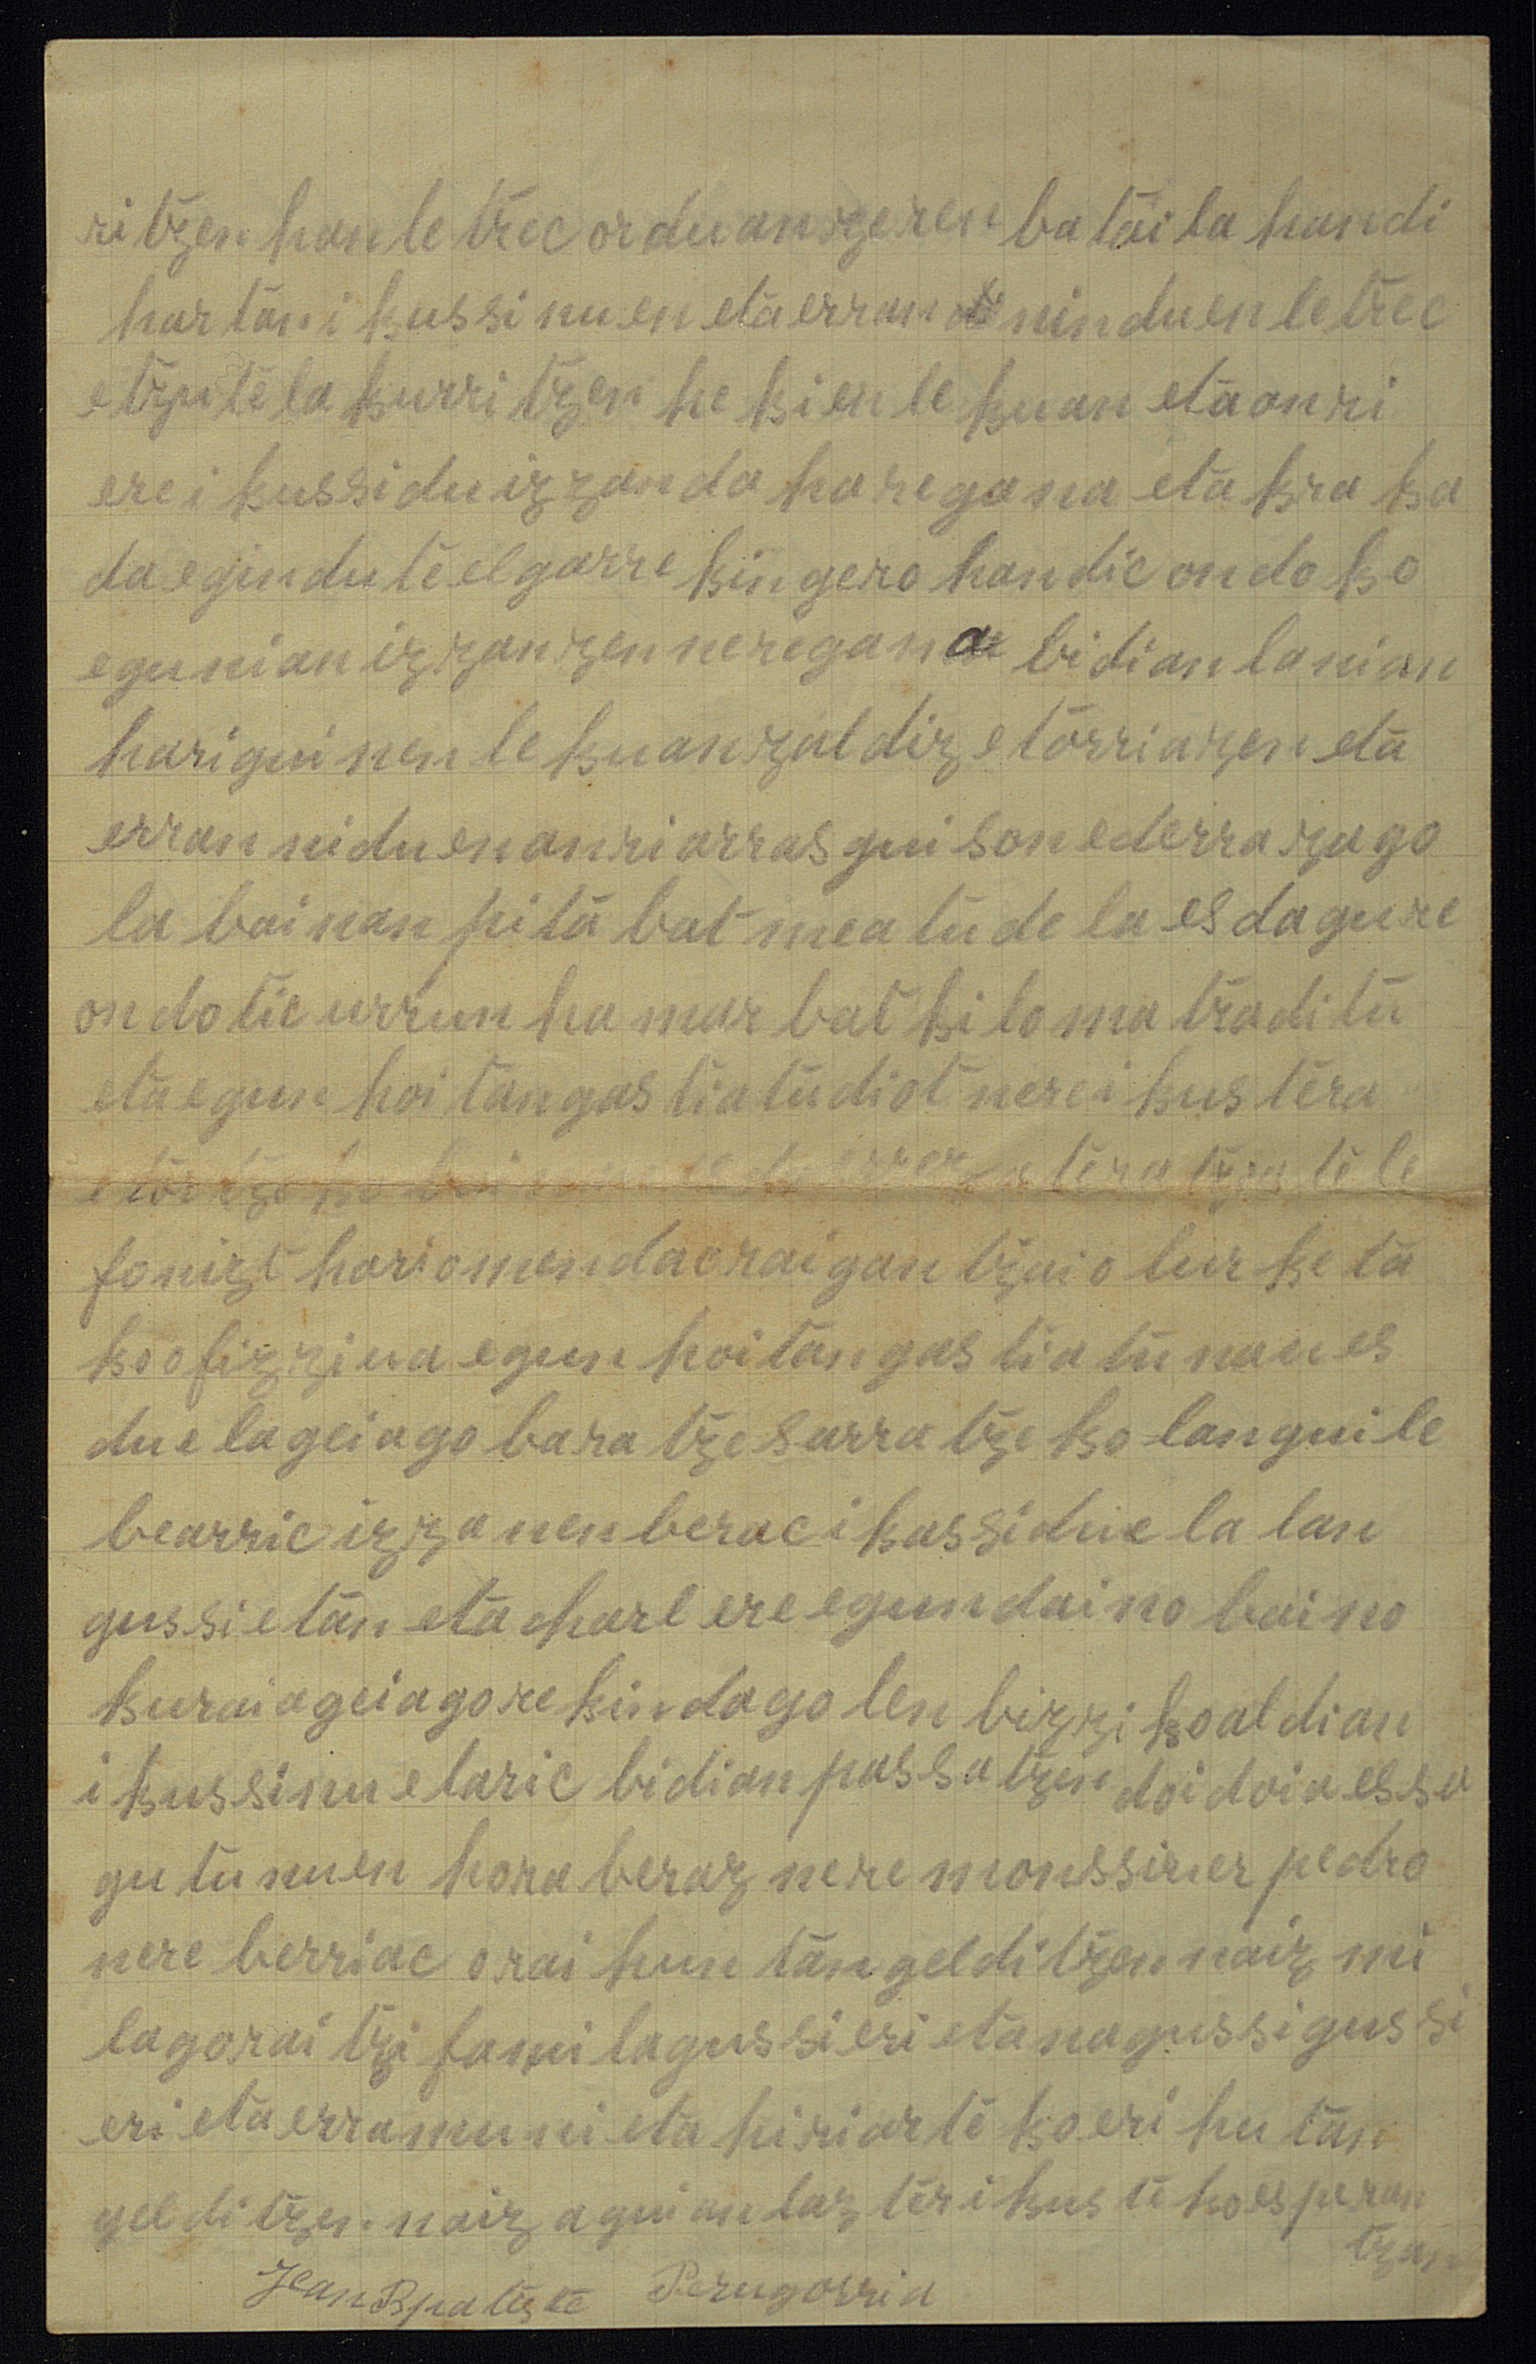 ritzen han letrec orduan zeren bataila handi
hartan ikussi nuen eta erran ninduen letrec
etzutela kurritzen hekien lekuan eta onri
ere ikussi du izzan da haregana eta kraka
da egin dute elgarrekin gero handic ondoko
egunian izzan zen neregana bidian lanian
hari guinen lekuan zaldiz etorria zen eta
erran niduen onri arras guison ederra zago
la bainan pita bat meatu dela es da gure
ondotic urrun hamar bat kilomatra ditu
eta egun hoitan gastiatu diot nere ikustera
etortzeko es da tera tzu tele
fonizt hari omen da orai gan tzaio lurketa
ko ofizziua egun hoitan gastiatu nau es
duela geiago baratze sarratzeko languile
bearric izzanen berac ikassi duela lan
gussietan eta charl ere egun daino baino
kuraia geiagorekin dago lenbizziko aldian
ikussi nuelaric bidian passatzen doi doia essa
gutu nuen hora beraz nere monssiuer pedro
nere berriac orai huntan gelditzen naiz mi
la goraitzi famila gussieri eta nagussi gussi
eri eta erramuni eta hiriarteko eri hutan
gelditzen naiz aguian laz ter ikusteko esperan
tzan
Jean Bpatiste Perugorria